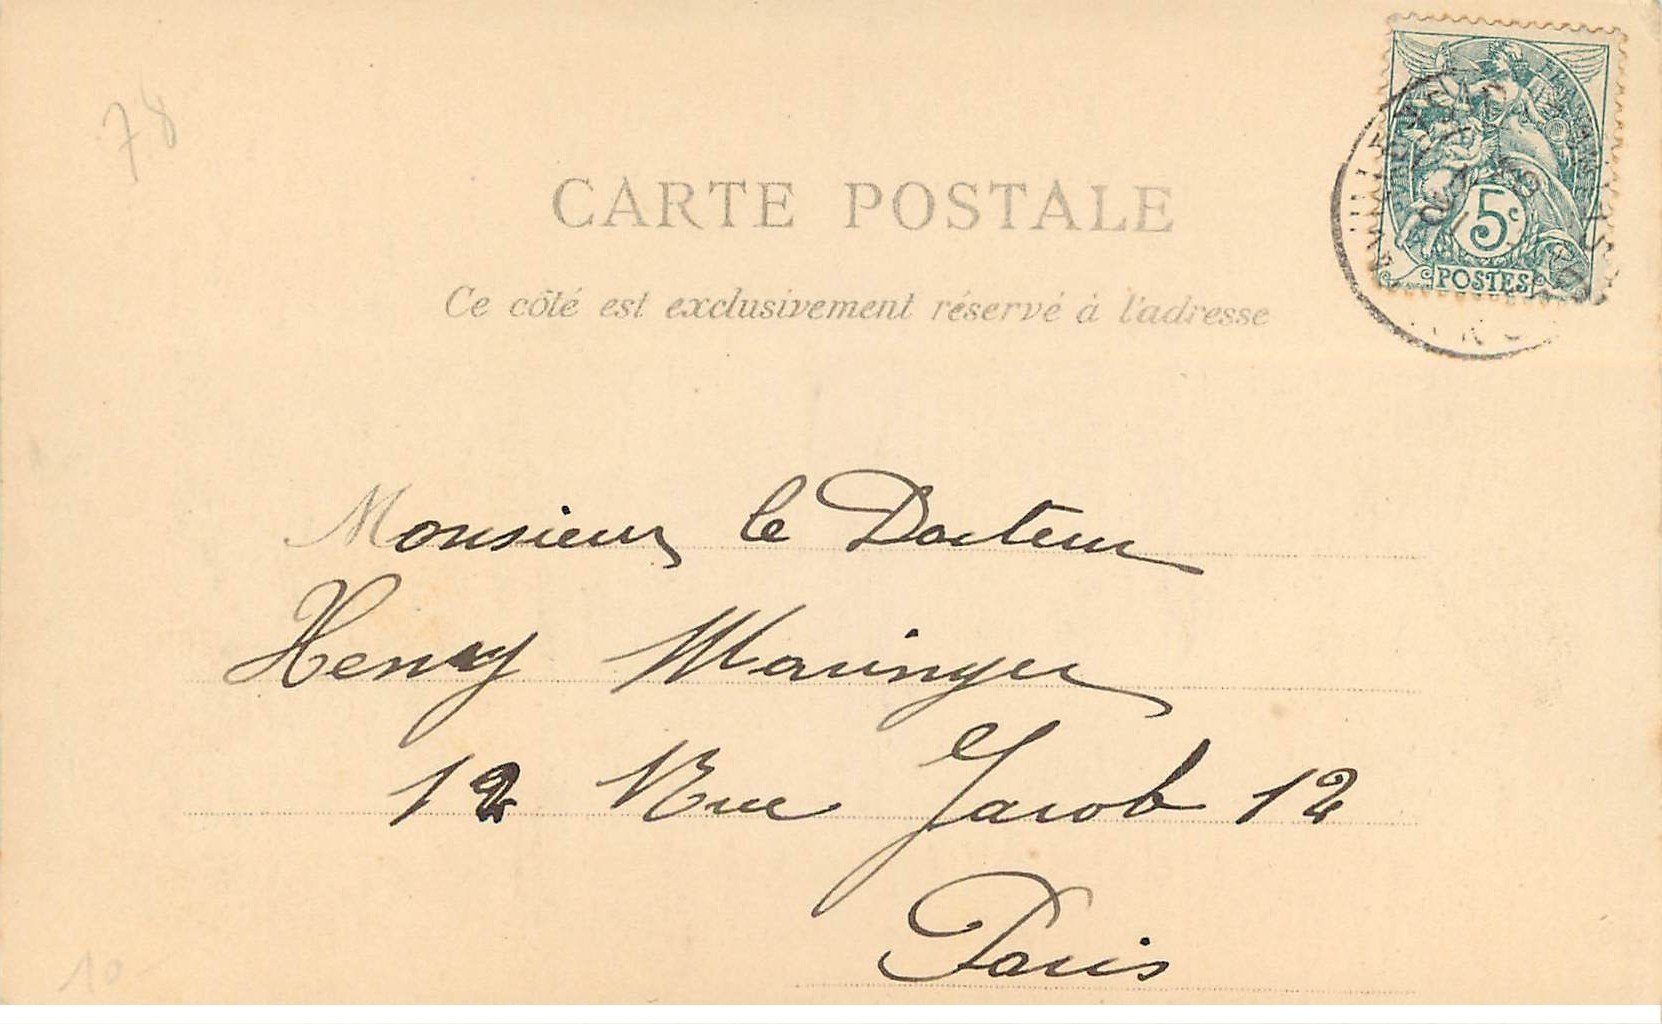 78
CARTE POSTALE
Ce côté est exclusivement réservé à l'adresse
5c
POSTES
Monsieur le Docteur
Henry Maringer
12 Rue Jacob 12
Paris
10